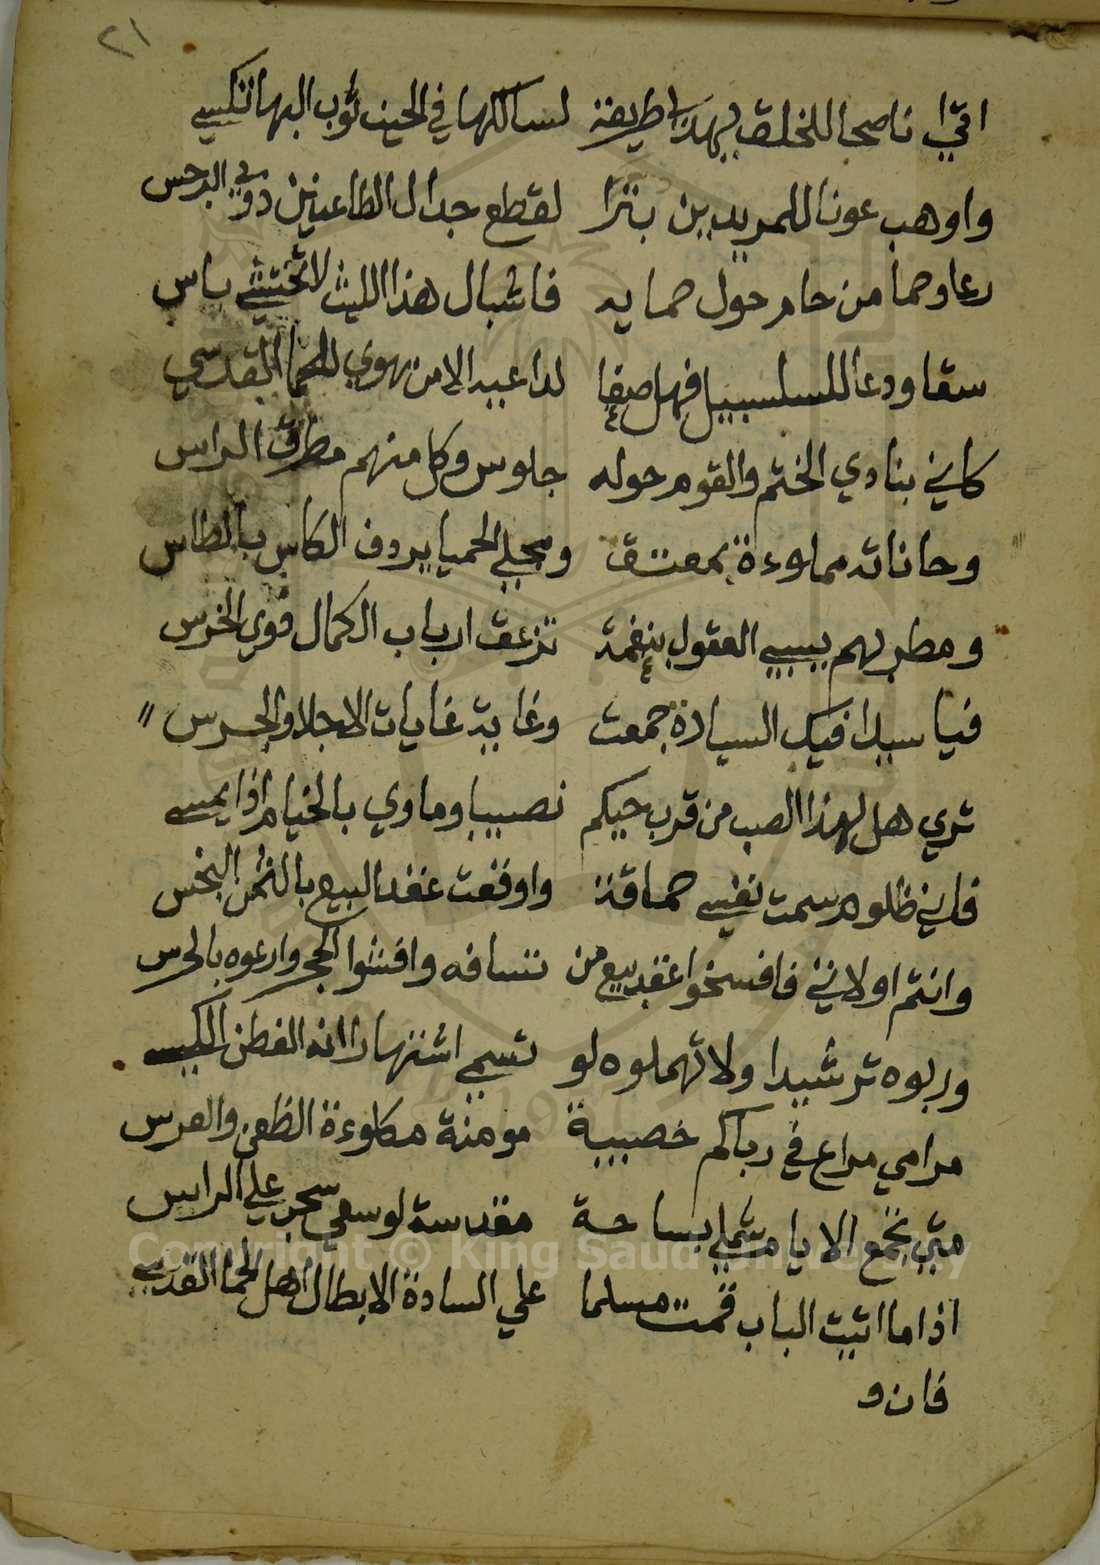 ٢١
اتي ناصحا للخلق يهدي طريقة لسالكها في الحين ثوب البها تكسي
واوهب عونا للمريدين باترا لقطع جدال الطاعنين ذوي الرجس
رعا وحما من حام حول حمايه فاشبال هذا الليث لا تختشي باس
سقا ودعا للسلسبيل فهل صفا لداعيه الا من يهوي للحما القدسي
كاني بنادي الختم والقوم حوله جلوس وكل منهم مطرق الراس
وحاناته مملوءة بمعتق ومجلي الحميا يردف الكاس بالطاس
ومطربهم يسبي العقول بنغمة تزعق ارباب الكمال قوي الخرس
فيا سيدا فيك السيادة جمعت وغابة غايات الاجلا والجرس
تري هل لهذا الصب من قرب حيكم نصيبا وماوي بالخيام اذا يمسي
فاني ظلوم سمت نفسي حماقة واوقعت عقد البيع بالثمن البخس
وانتم اولاني فافسخوا عقد بيع من تسافه وافشوا الحجر وارعوه بالحرس
وربوه ترشيدا ولا تهملوه لو تسمي اشتهارا انه الفطن الكيس
مرامي مراع في رباكم خصيبة مومنة مكلوءة الظعن والعرس
متي تجمع الايام شملي بساحة مقدسة لو سعي سحر علي الراس
اذا ما اتيت الباب قمت مسلما علي السادة الابطال اهل الحما القدسي
فان و
Copyright © King Saud University